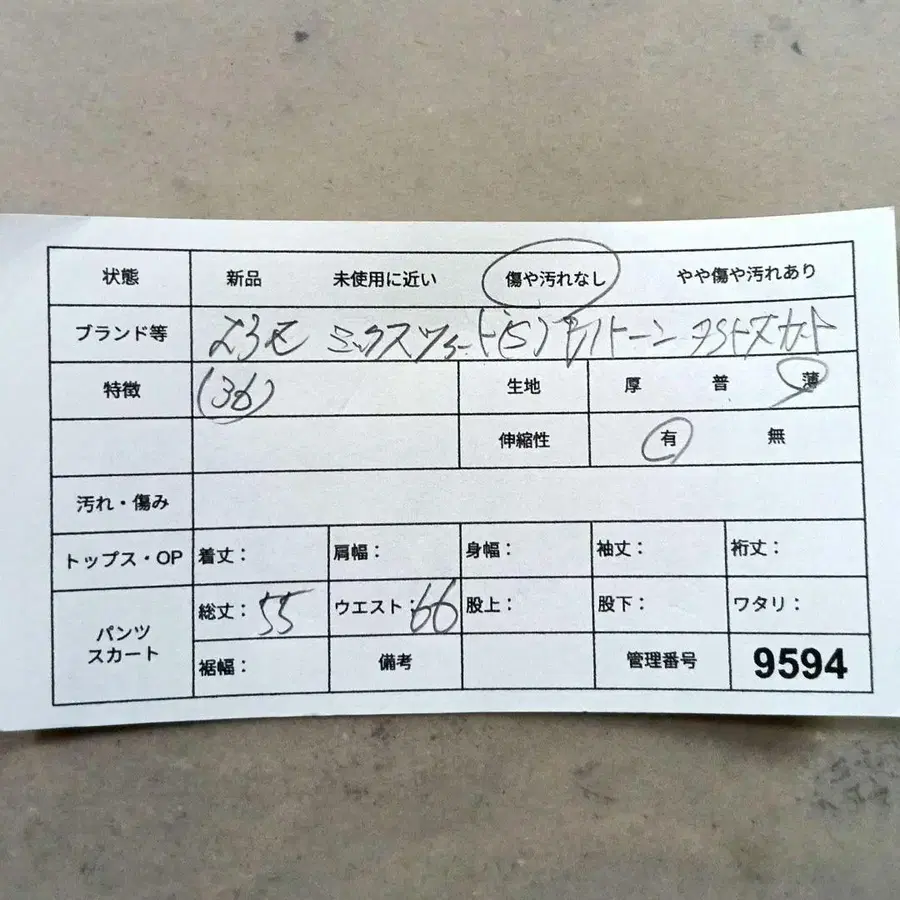 状態 新品 未使用に近い 傷や汚れなし やや傷や汚れあり
ブランド等 23区 ミックスツィード(S)
特徴 (36) 生地 厚 普 薄
伸縮性 有 無
汚れ・傷み
トップス・OP 着丈： 肩幅： 身幅： 袖丈： 裄丈：
パンツ スカート 総丈：55 ウエスト：66 股上： 股下： ワタリ：
裾幅： 備考 管理番号 9594